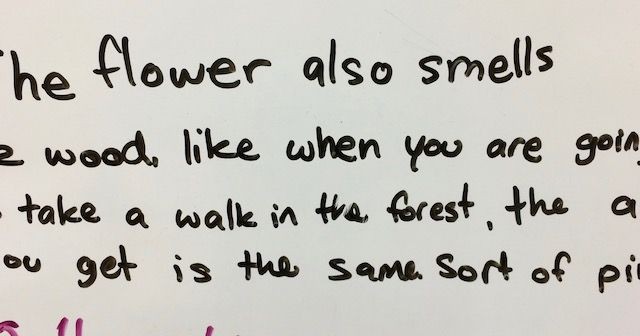 The flower also smells
wood, like when you are goin
take a walk in the forest, the a
ou get is the same sort of pi